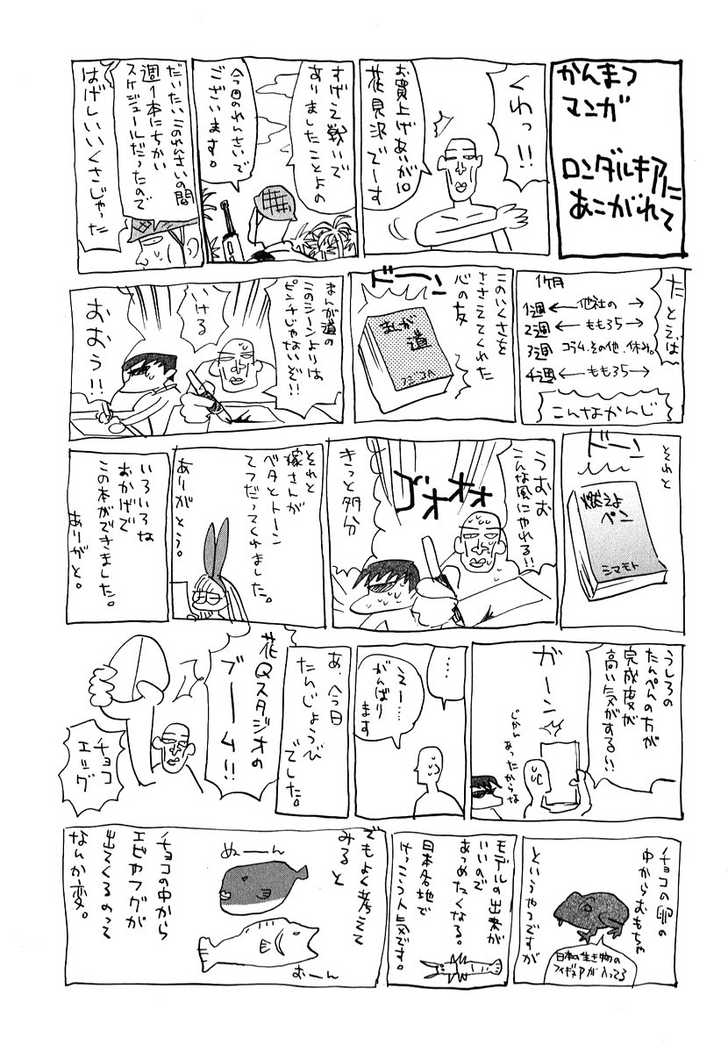 かんまつ
マンガ
ロンダルキアに
あこがれて
くわっ!!
お買上げありが10
花見沢でーす
すげえ戦いで
ありましたことよの
今回のれんさいで
ございます。
だいたいこのれんさいの間
週1本にちかい
スケジュールだったので
はげしいいくさじゃった
たとえば
1ヶ月
1週 ← 他社の →
2週 ← もも35 →
3週 コラム、その他、休み。
4週 ← もも35 →
こんなかんじ
このいくさを
ささえてくれた
心の友
ドーン
まんが
道
フジコA
まんが道の
このシーンよりは
ピンチじゃないぞ!!
いける
おおう!!
それと
ドーン
燃えよ
ペン
シマモト
うむむ
こんな風にやれる!!
ゴオオオオ
きっと多分
それと
嫁さんが
ベタとトーン
てつだってくれました。
ありがとう。
いろいろな
おかげで
この本ができました。
ありがと。
うしろの
たんぺんの方が
完成度が
高い気がする!!
ガーン
じかん
あったからな
…
えー…
がんばり
ます
あ、今日
たんじょうび
でした。
花Qスタジオの
ブーム!!
チョコ
エッグ
チョコの卵の
中からおもちゃ
というやつですが
日本の生き物の
フィギュアが入ってる
モデルの出来が
いいので
あつめたくなる。
日本各地で
けっこう人気です。
でもよく考えて
みると
ぬーん
むーん
チョコの中から
エビやフグが
出てくるのって
なんか変。